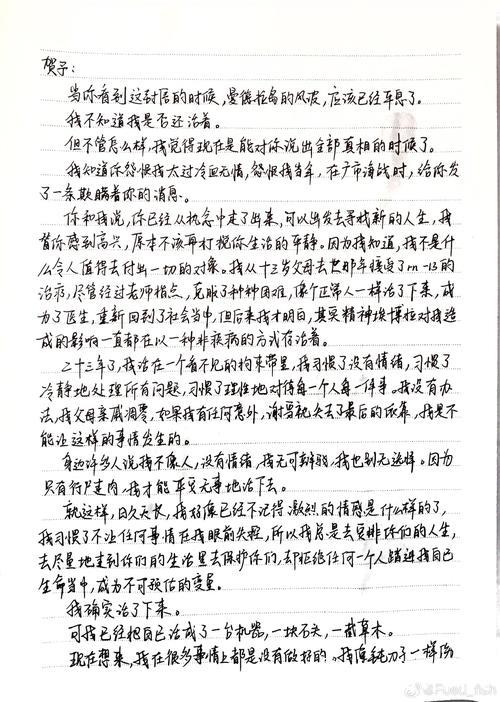 贺予：
当你看到这封信的时候，曼德拉岛的风波，应该已经平息了。
我不知道我是否还活着。
但不管怎么样，我觉得现在是能对你说出全部真相的时候了。
我知道你怨恨我太过冷血无情，怨恨我当年，在广市海战时，给你发
了一条欺瞒着你的消息。
你和我说，你已经从执念中走了出来，可以出发去寻找新的人生，我
替你感到高兴，原本不该再打搅你生活的平静。因为我知道，我不是什
么令人值得去付出一切的对象。我从十三岁父母去世那年接受了rn-13的
治疗，尽管经过老师指点，克服了种种困难，像个正常人一样活了下来，成
为了医生，重新回到了社会当中，但后来我才明白，其实精神埃博拉对我造
成的影响一直都在以一种非疾病的方式存活着。
二十三年了，我活在一个看不见的拘束带里，我习惯了没有情绪，习惯了
冷静地处理所有问题，习惯了理性地对待每一个人每一件事。我没有办
法，我父母亲戚凋零，如果我有任何意外，谢雪就失去了最后的依靠，我是不
能让这样的事情发生的。
身边许多人说我不像人，没有情绪，我无可辩驳，我也别无选择。因为
只有行尸走肉，我才能平安无事地活下去。
就这样，日久天长，我好像已经不记得激烈的情感是什么样的了，
我习惯了不让任何事情在我眼前失控，所以我总是去安排你们的人生，
去尽量地走到你们的生活里去保护你们，却拒绝任何一个人踏进我自己
生命当中，成为不可预估的变量。
我确实活了下来。
可我已经把自己活成了一台机器，一块石头，一截草木。
现在想来，我在很多事情上都是没有做好的。我像钝刀了一样伤
@Fueu_fish